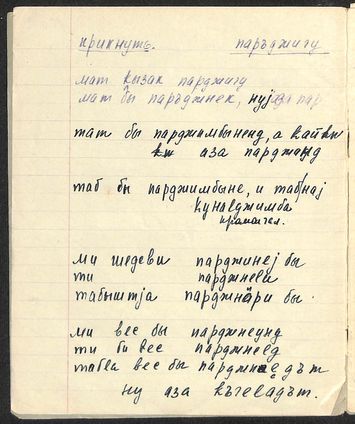 крикнуть. паръджигу
мат кызак парджигу
мат бы паръджнек, нуј аза пар
тат бы парджимбыненд, а кайкы
аза парджанд
таб бы парджимбыне, и табнај
кунаеджимба
ми шедеви парджинеј бы
ти парджнели
табыштја парджнäри бы.
ми вес бы парджнеунд
ти би вес парджнеед
табла вес бы парджнедът
ну аза къгеладът.